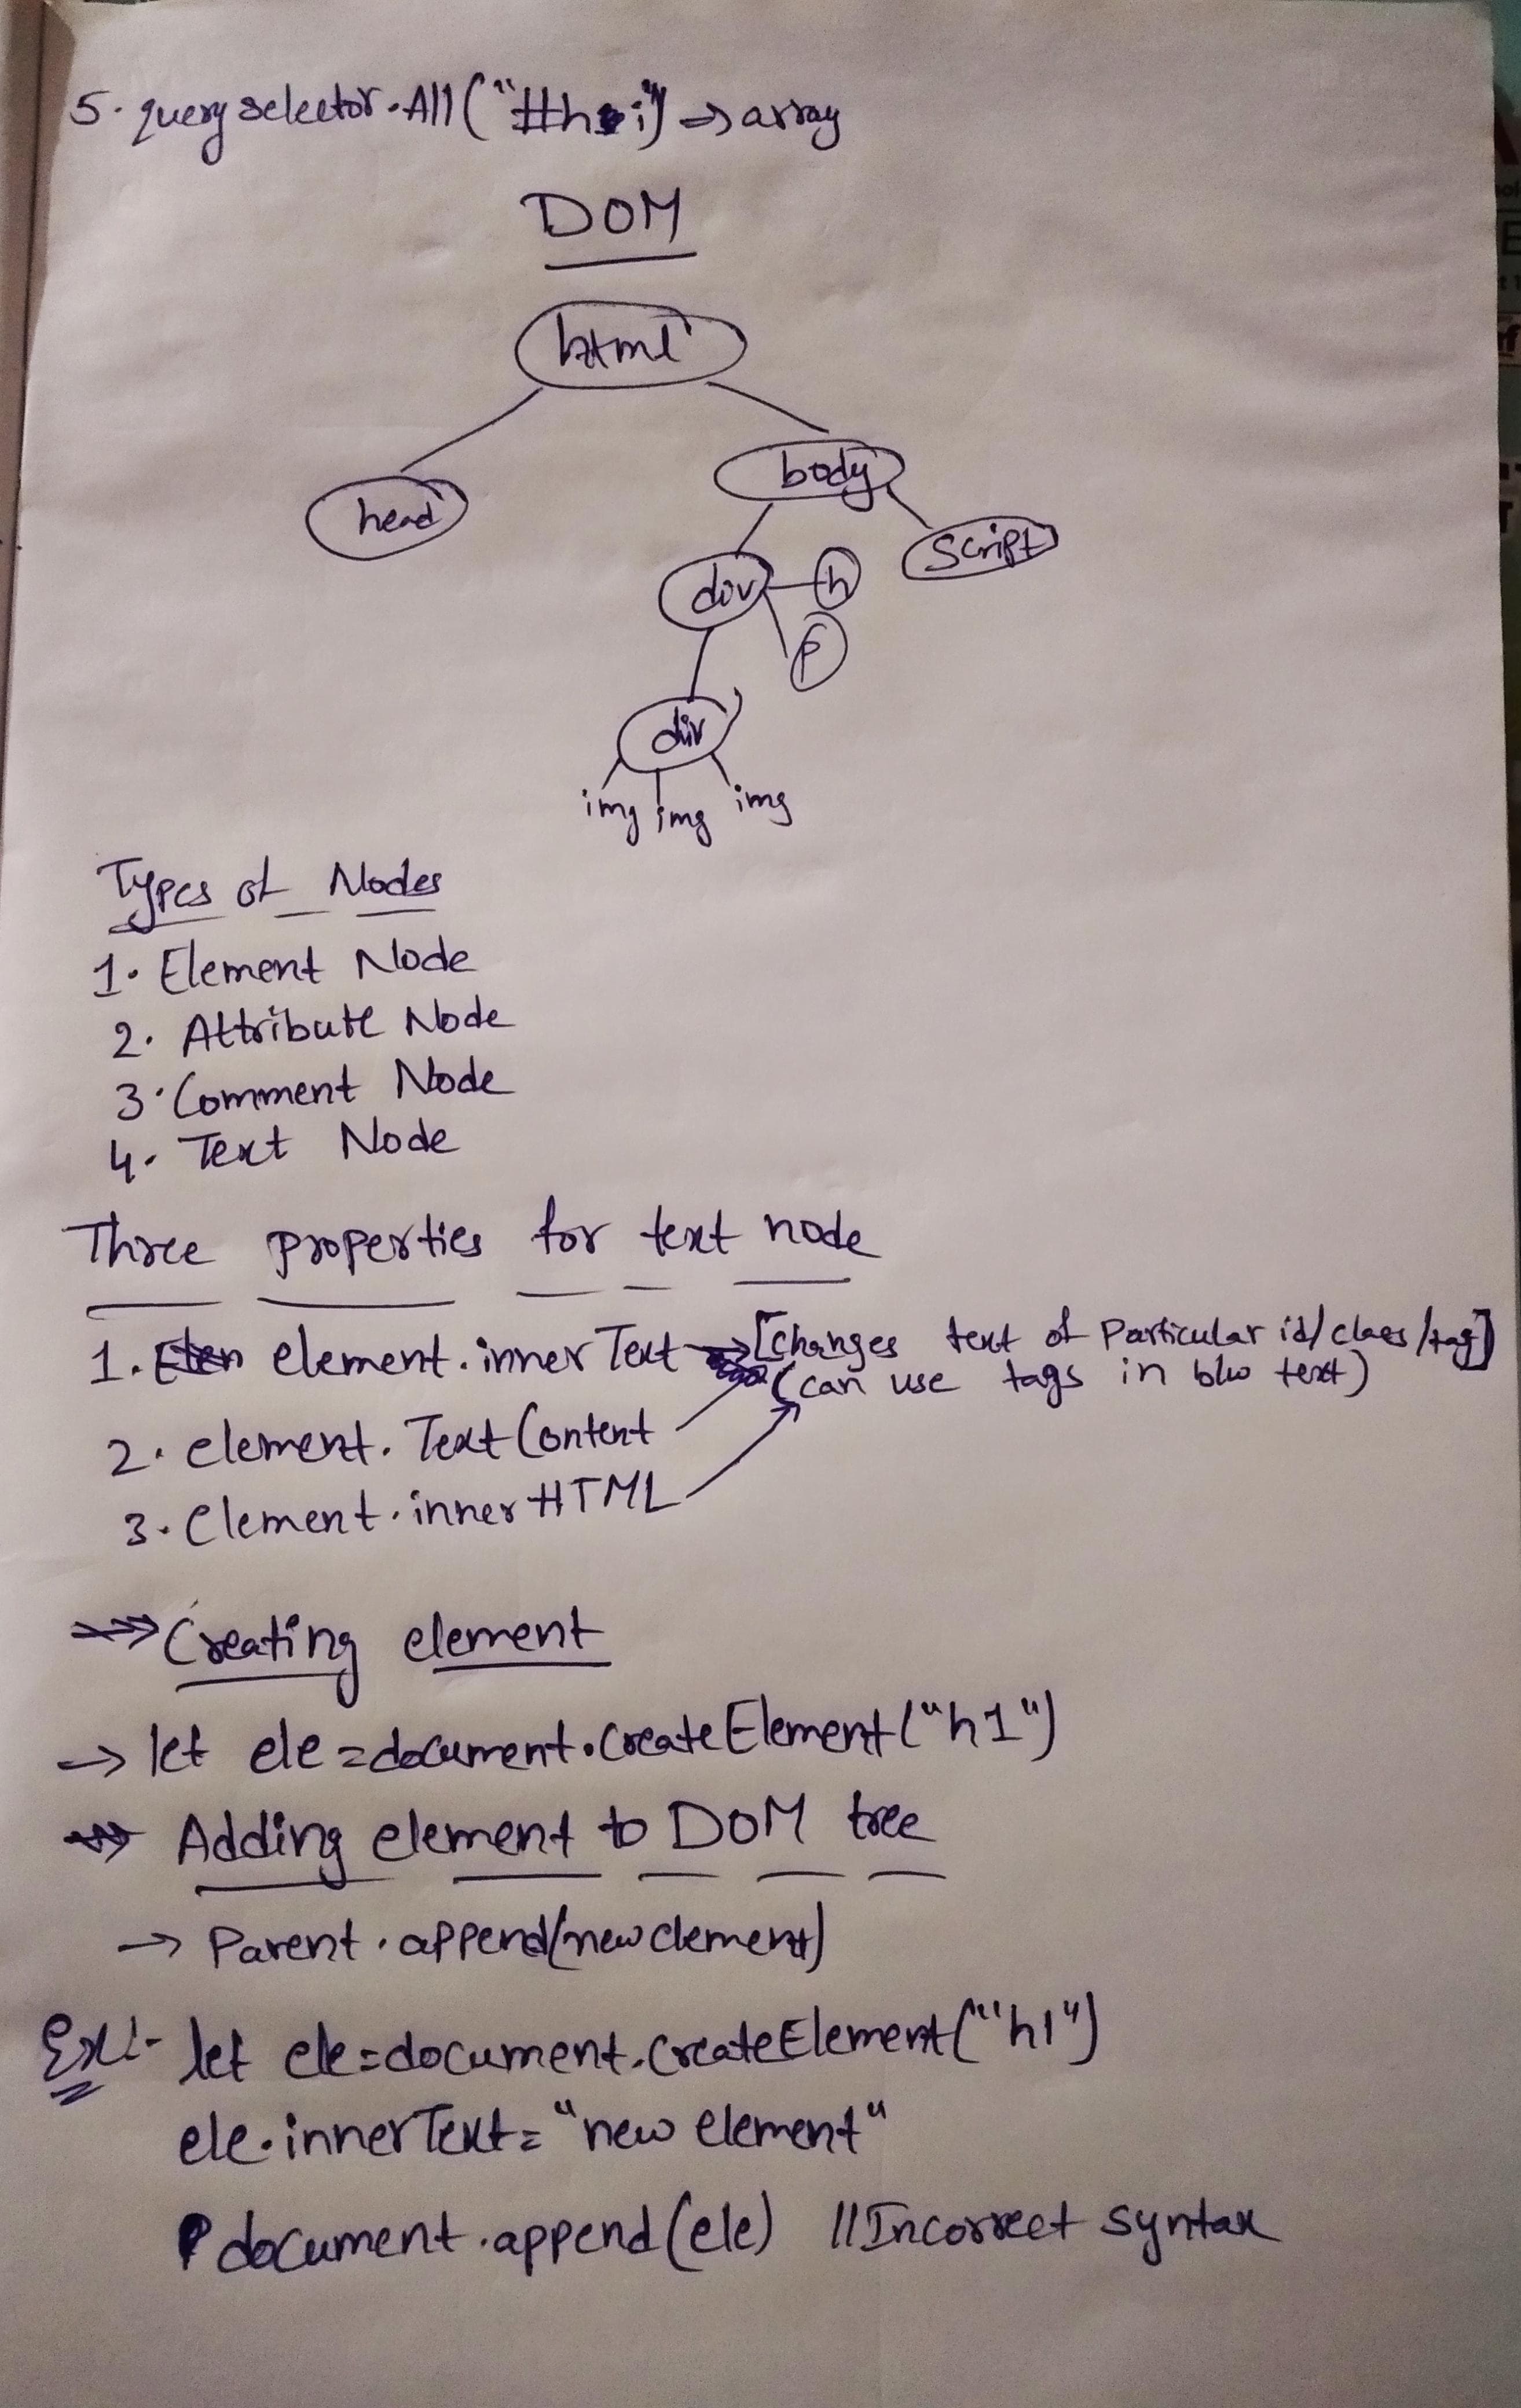 5. queryselector.All("#hi") => array
DOM
html
head
body
script
div
h
p
div
img img img
Types of Nodes
1. Element Node
2. Attribute Node
3. Comment Node
4. Text Node
Three properties for text node
1. element.innerText → [changes text of particular id/class/tag]
(can use tags in b/w text)
2. element.TextContent
3. Element.innerHTML
Creating element
→ let ele=document.createElement("h1")
Adding element to DOM tree
→ Parent.append(newelement)
Ex:- let ele=document.createElement("h1")
ele.innerText="new element"
document.append(ele) //Incorrect syntax